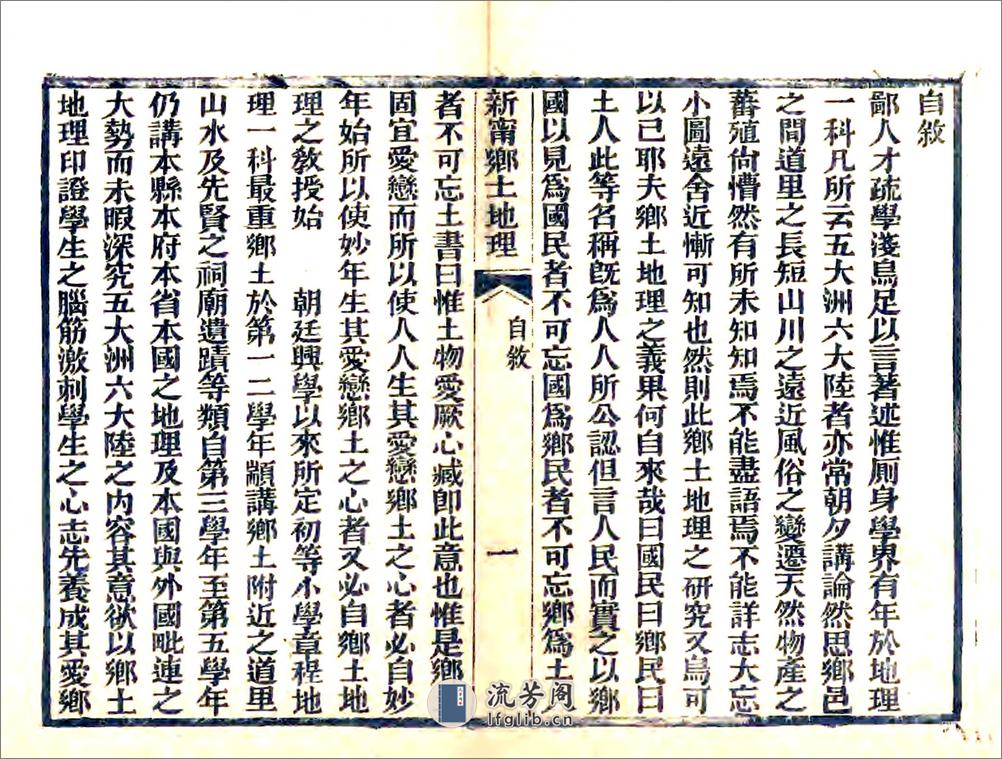 自敘
鄙人才疏學淺烏足以言著述惟厠身學界有年於地理
一科凡所云五大洲六大陸者亦常朝夕講論然思鄉邑
之間道里之長短山川之遠近風俗之變遷天然物產之
蕃殖尙懵然有所未知知焉不能盡語焉不能詳志大忘
小圖遠舍近慚可知也然則此鄉土地理之硏究又烏可
以已耶夫鄉土地理之義果何自來哉曰國民曰鄉民曰
土人此等名稱旣爲人人所公認但言人民而實之以鄉
國以見爲國民者不可忘國爲鄉民者不可忘鄉爲土
新甯鄉土地理
自敘
一
者不可忘土書曰惟土物愛厥心臧卽此意也惟是鄉
固宜愛戀而所以使人人生其愛戀鄉土之心者必自妙
年始所以使妙年生其愛戀鄉土之心者又必自鄉土地
理之敎授始 朝廷興學以來所定初等小學章程地
理一科最重鄉土於第一二學年顓講鄉土附近之道里
山水及先賢之祠廟遺蹟等類自第三學年至第五學年
仍講本縣本府本省本國之地理及本國與外國毗連之
大勢而未暇深究五大洲六大陸之內容其意欲以鄉土
地理印證學生之腦筋激刺學生之心志先養成其愛鄉
流芳阁
lfglib.cn